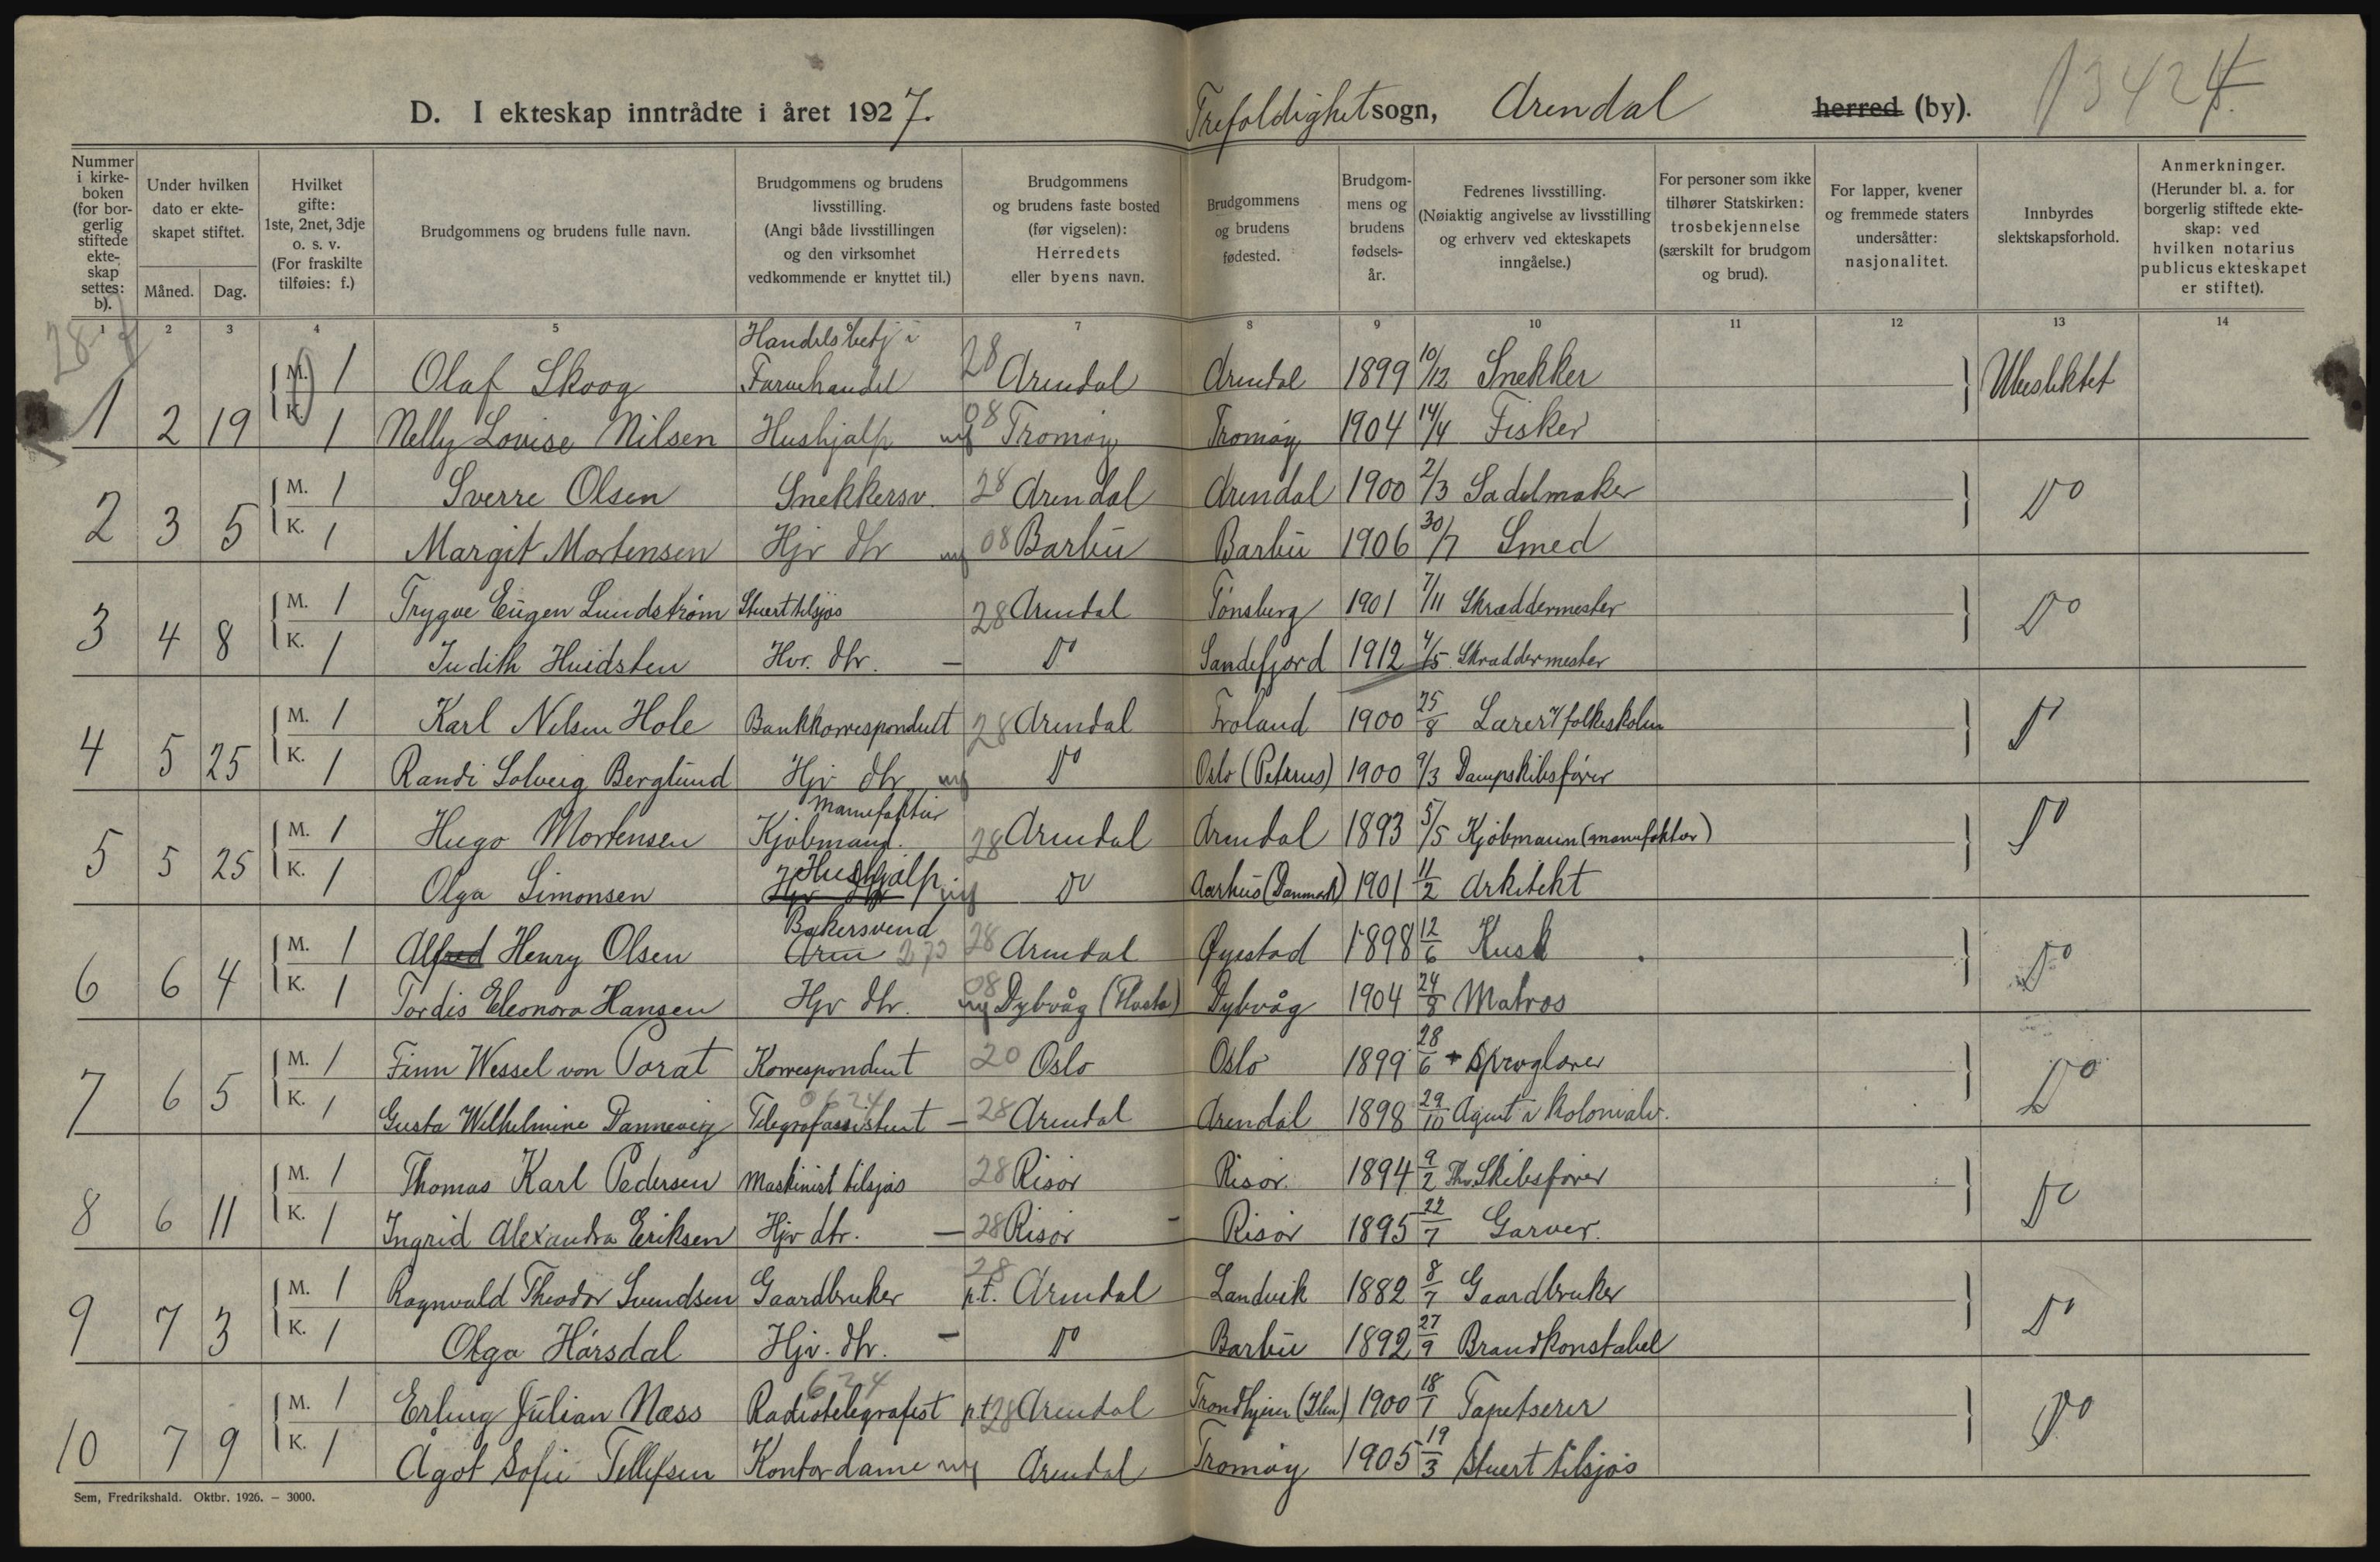 D. I ekteskap inntrådte i året 1927. Trefoldighet sogn, Arendal herred (by). 13424
Nummer i kirkeboken (for borgerlig stiftede ekteskap settes: b).
Under hvilken dato er ekteskapet stiftet.
Måned. Dag.
Hvilket gifte: 1ste, 2net, 3dje o. s. v. (For fraskilte tilføies: f.)
Brudgommens og brudens fulle navn.
Brudgommens og brudens livsstilling. (Angi både livsstillingen og den virksomhet vedkommende er knyttet til.)
Brudgommens og brudens faste bosted (før vigselen): Herredets eller byens navn.
Brudgommens og brudens fødested.
Brudgommens og brudens fødselsår.
Fedrenes livsstilling. (Nøiaktig angivelse av livsstilling og erhverv ved ekteskapets inngåelse.)
For personer som ikke tilhører Statskirken: trosbekjennelse (særskilt for brudgom og brud).
For lapper, kvener og fremmede staters undersåtter: nasjonalitet.
Innbyrdes slektskapsforhold.
Anmerkninger. (Herunder bl. a. for borgerlig stiftede ekteskap: ved hvilken notarius publicus ekteskapet er stiftet).
1 2 3 4 5 6 7 8 9 10 11 12 13 14
28-7
Handelsbetj i
1 2 19 M. 1 Olaf Skoog Farvehandel 28 Arendal Arendal 1899 10/12 Snekker Ubeslektet
K. 1 Nelly Lovise Nilsen Hushjalp 08 Tromøy Tromøy 1904 14/4 Fisker
2 3 5 M. 1 Sverre Olsen Snekkersv. 28 Arendal Arendal 1900 2/3 Sadelmaker Do
K. 1 Margit Mortensen Hjv dtr 08 Barbu Barbu 1906 30/7 Smed
3 4 8 M. 1 Trygve Eugen Lundstrøm Stuert tilsjøs 28 Arendal Tønsberg 1901 7/11 Skræddermester Do
K. 1 Judith Hvidsten Hvr. dtr. — Do Sandefjord 1912 4/5 Skræddermester
4 5 25 M. 1 Karl Nilsen Hole Bankkorrespondent 28 Arendal Froland 1900 25/8 Lærer v/ folkeskolen Do
K. 1 Randi Solveig Berglund Hjv dtr Do Oslo (Petrus) 1900 9/3 Dampskibsfører
manufaktur
5 5 25 M. 1 Hugo Mortensen Kjøbmand. 28 Arendal Arendal 1893 5/5 Kjøbmann (manufaktur) Do
K. 1 Olga Simonsen Hjv dtr Hushjalp Do Aarhus (Danmark) 1901 11/2 Arkitekt
Bakersvend
6 6 4 M. 1 Alfred Henry Olsen Aren 272 28 Arendal Øyestad 1898 12/6 Kusk Do
K. 1 Tordis Eleonora Hansen Hjv dtr. 08 Dybvåg (Flosta) Dybvåg 1904 24/8 Matros
7 6 5 M. 1 Finn Wessel von Porat Korrespondent 20 Oslo Oslo 1899 28/6 + Sproglærer Do
0624
K. 1 Gusta Wilhelmine Dannevig Telegrafassistent — 28 Arendal Arendal 1898 29/10 Agent i kolonialv.
8 6 11 M. 1 Thomas Karl Pedersen Maskinist tilsjøs 28 Risør Risør. 1894 9/2 Fhv. Skibsfører Do
K. 1 Ingrid Alexandra Eriksen Hjv dtr. — 28 Risør Risør 1895 22/7 Garver.
9 7 3 M. 1 Ragnvald Theodor Svendsen Gaardbruker 28 p.t. Arendal Landvik 1882 8/7 Gaardbruker Do
K. 1 Olga Hårsdal Hjv. dtr. — Do Barbu 1892 27/9 Brandkonstabel
624
10 7 9 M. 1 Erling Julian Næss Radiotelegrafist p.t. 28 Arendal Trondhjem (Ilen) 1900 18/1 Tapetserer Do
K. 1 Ågot Sofie Tellefsen Kontordame Arendal Tromøy 1905 19/3 Stuert tilsjøs
Sem, Fredrikshald. Oktbr. 1926. — 3000.